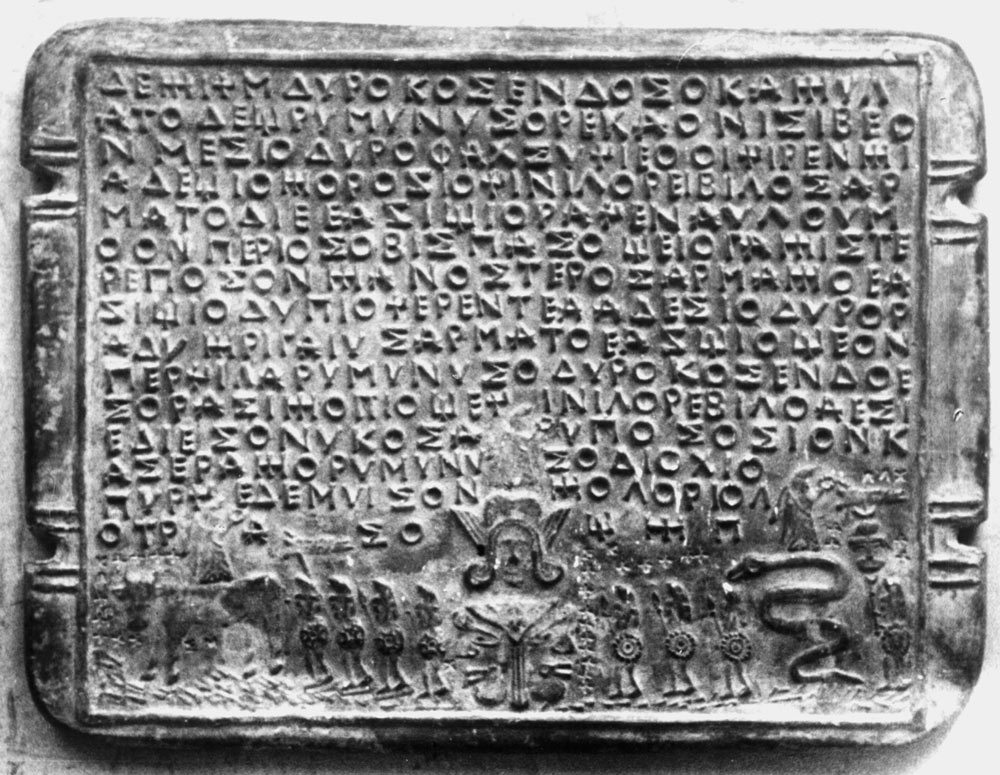 ΔΕΨΙΨΜ ΔΥΡΟ ΚΟΣΕΝΔΟΣΟΚΑΨΥΛ
ΑΤΟ ΔΕΨΡΥΜΥΝΥ ΣΟΡΕΚΑΟΝΙΣΙΒΕΟ
Ν ΜΕΣΙΟ ΔΥΡΟΦΑΧΣΥΨΙΕΟΟΙΨΙΡΕΝΨΙ
ΑΔΕΨΙΟΨΟΡΟΣΙΟΨΙΝΙΛΟΡΕΙΒΙΛΟΣΑΡ
ΜΑΤΟΔΙΕΕΑΣΙΨΙΟΡΑΨΕΝΑΥΛΟΥΜ
ΟΟΝ ΠΕΡΙΟΣΟΒΙΣΠΑΣΟ ΨΕΙΟΓΑΨΙΣΤΕ
ΡΕΠΟΣΟΝΨΑΝΟΣΤΕΡΟΣΑΡΜΑΨΟΕΑ
ΣΙΨΙΟΔΥΠΙΟΨΕΡΕΝΤΕΑΑΔΕΣΙΟΔΥΡΟΡ
ΑΔΥ ΨΡΙΓΑΙΥ ΣΑΡΜΑΤΟΕΑΣΨΙΟΨΕΟΝ
ΠΕΡΨΙΛΑΡΥΜΥΝΥ ΣΟ ΔΥΡΟΚΟΣΕΝΔΟΕ
ΣΟΡΑΣΙΨΟΠΙΟΨΕΨ ΙΝΙΛΟΡΕΒΙΛΟΑΕΣΙ
ΕΔΙΕΣΟΝΥΚΟΣΑ ΡΥΠΟΣΟΣΙΟΝΚ
ΑΣΕΡΑΨΟΡΥΜΥΝΥ ΣΟΔΙΟΧΙΟ
ΠΥΡΨΕΔΕΜΥΙΣΟΝ ΨΟΛΟΡΙΟΛ
ΟΤΡ Α ΣΟ Ψ Ψ Π